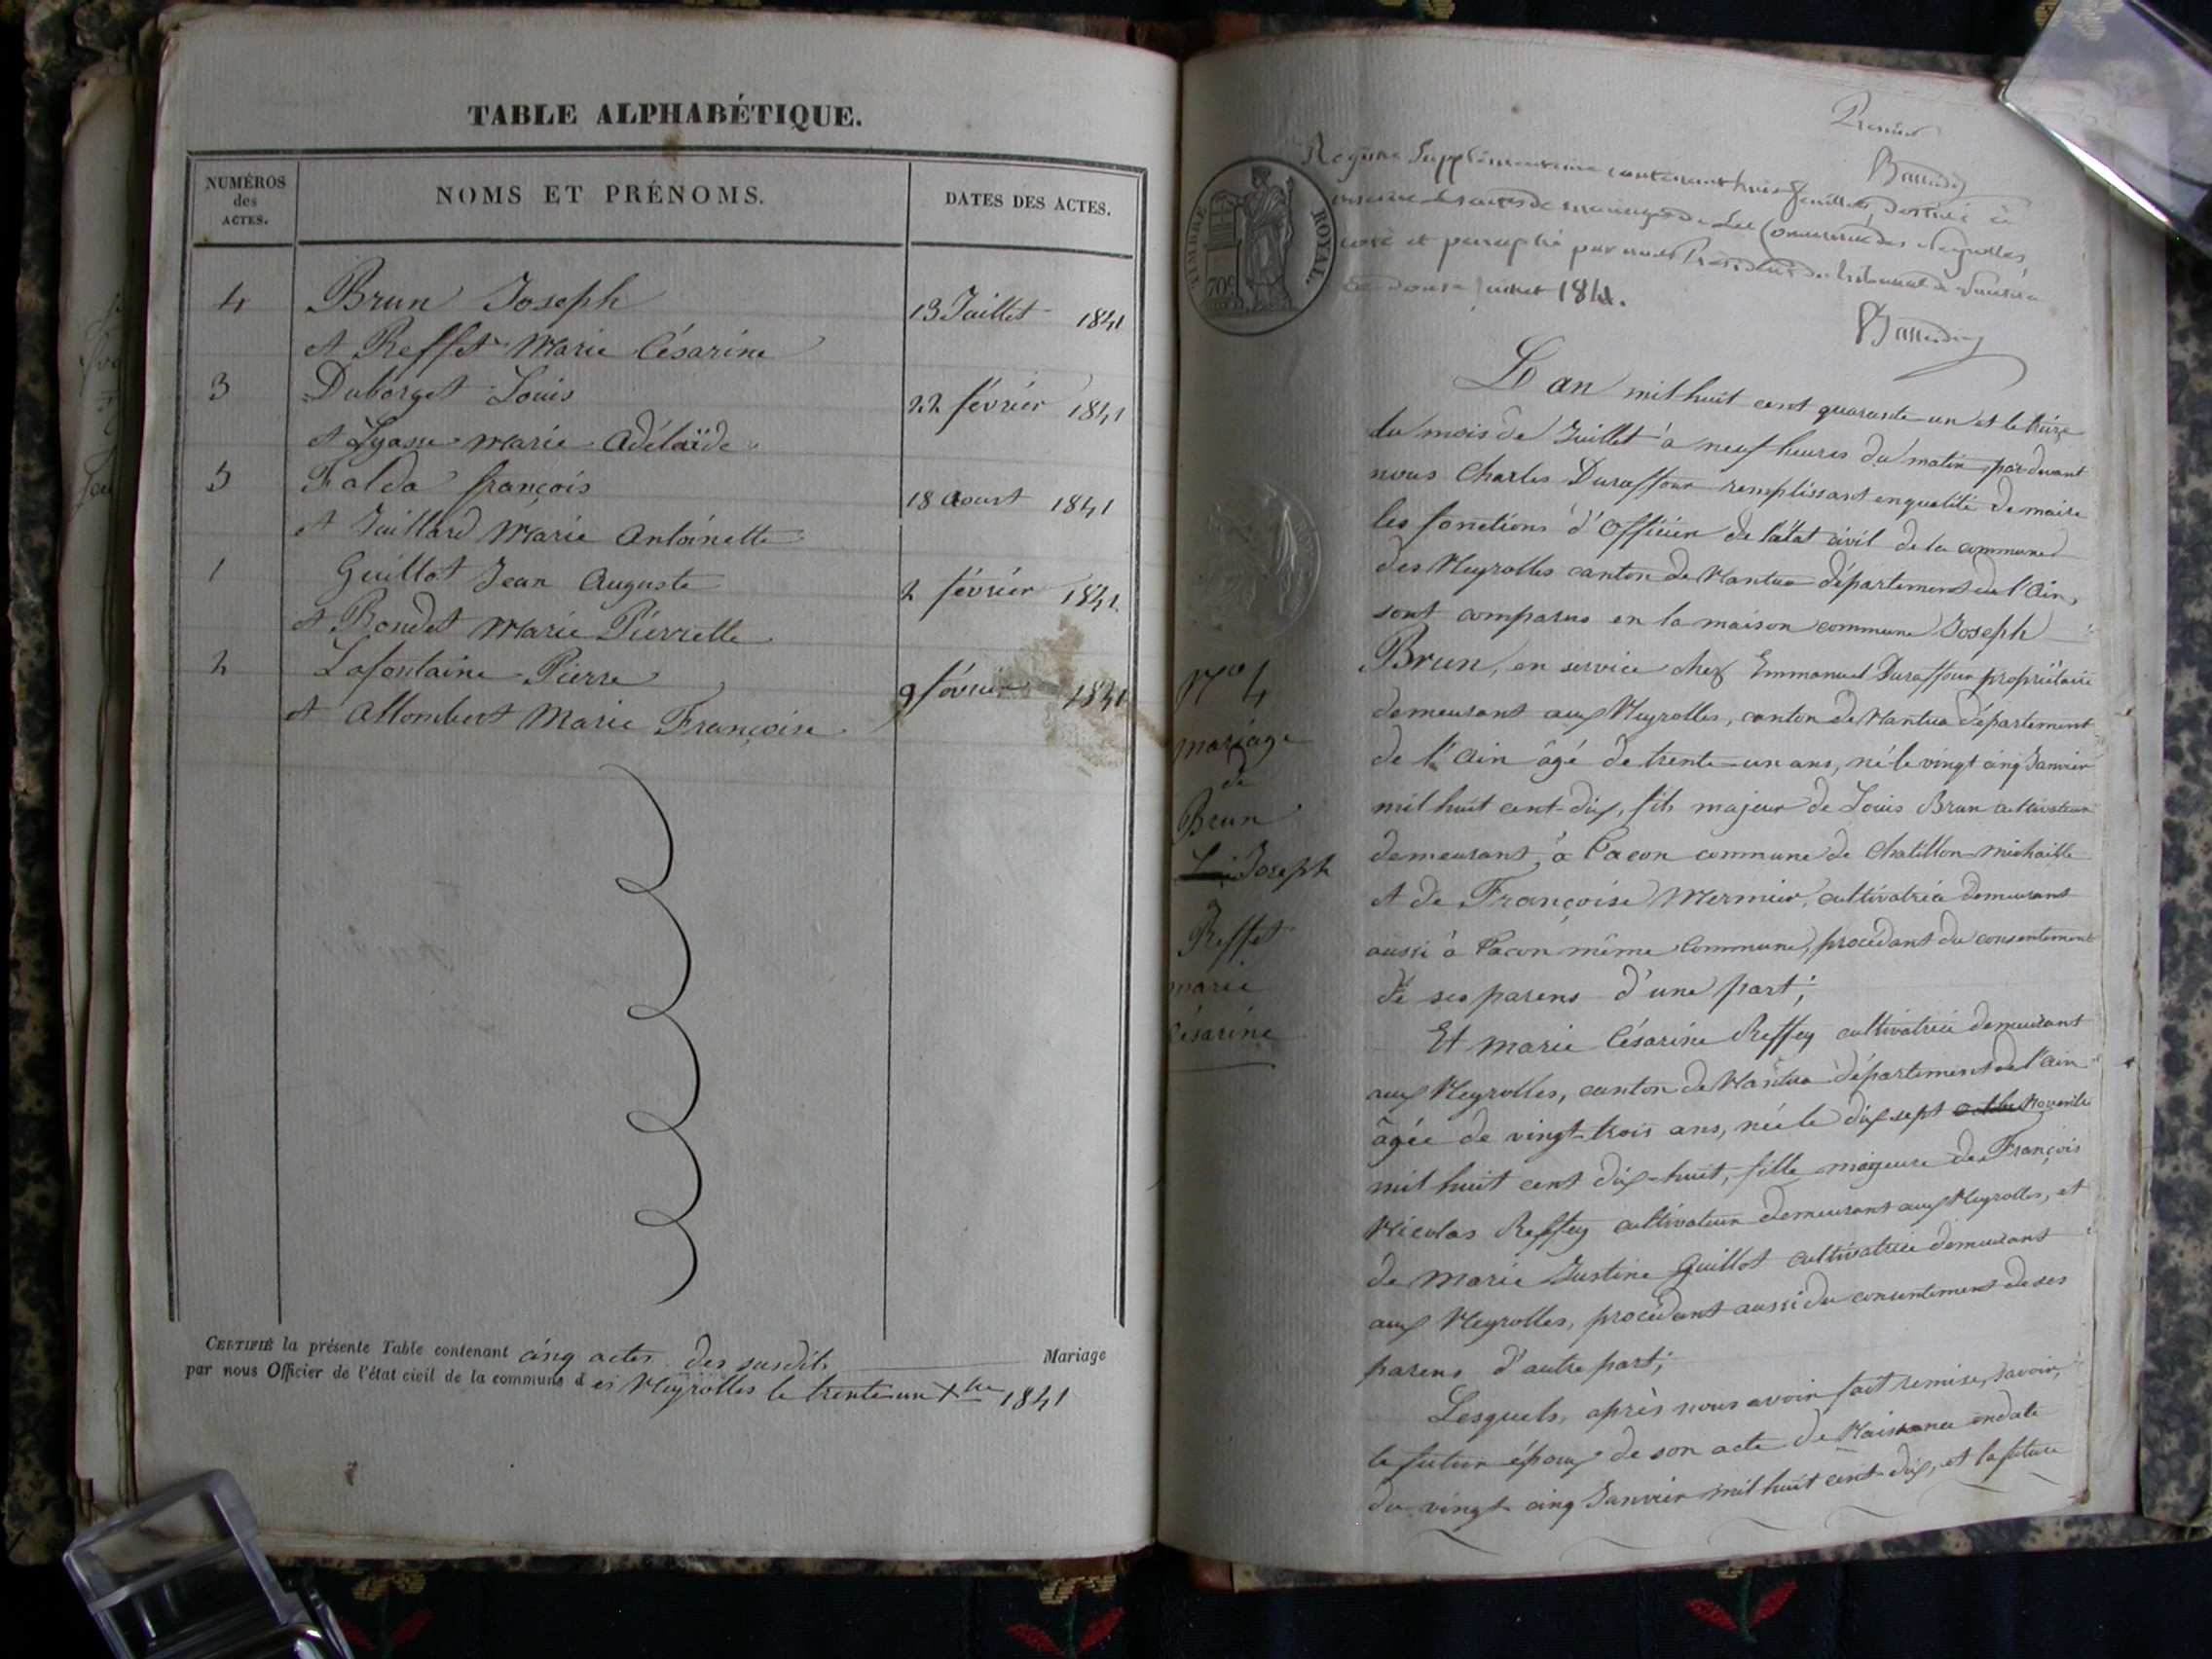 TABLE ALPHABÉTIQUE.
NUMÉROS des ACTES.
NOMS ET PRÉNOMS.
DATES DES ACTES.
4 Brun Joseph 13 Juillet 1841
et Reffet Marie Césarine
3 Duborget Louis 22 février 1841
et Lyasse Marie Adélaïde
5 Falda françois 18 Aoust 1841
et Juillard Marie Antoinette
1 Guillot Jean Auguste 2 février 1841
et Rondet Marie Pierrette
2 Lafontaine Pierre 9 février 1841
et Allombert Marie Françoise
CERTIFIÉ la présente Table contenant cinq actes des susdits Mariage
par nous Officier de l'état civil de la commune des Neyrolles le trente un Xbre 1841
Premier
Registre Supplémentaire contenant huit feuillets, destiné à
inscrire les actes de mariages de la Commune des Neyrolles,
coté et paraphé par nous Président du tribunal de Nantua
ce douze Juillet 1841.
TIMBRE ROYAL
70c
L'an mil huit cent quarante-un et le treize
du mois de Juillet à neuf heures du matin, par devant
nous Charles Duraffour remplissant en qualité de maire
les fonctions d'officier de l'état civil de la commune
des Neyrolles canton de Nantua département de l'Ain,
sont comparus en la maison commune Joseph
Brun, en service chez Emmanuel Duraffour propriétaire
demeurant aux Neyrolles, canton de Nantua département
de l'Ain âgé de trente-un ans, né le vingt cinq Janvier
mil huit cent-dix, fils majeur de Louis Brun cultivateur
demeurant à Vacon commune de Chatillon-michaille
et de Françoise Mermier, cultivatrice demeurant
aussi à Vacon même commune, procédant du consentement
de ses parens d'une part;
Et marie Césarine Reffey cultivatrice demeurant
aux Neyrolles, canton de Nantua département de l'ain
âgée de vingt-trois ans, née le dix sept octobre Novembre
mil huit cent dix-huit, fille majeure de François
Nicolas Reffey cultivateur demeurant aux Neyrolles, et
de Marie Justine Guillot cultivatrice demeurant
aux Neyrolles, procédant aussi du consentement de ses
parens d'autre part;
Lesquels, après nous avoir fait remise, savoir,
le futur époux de son acte de Naissance en date
du vingt-cinq Janvier mil huit cent-dix, et la future
N° 4
mariage
de
Brun
Joseph
Reffet
marie
Césarine